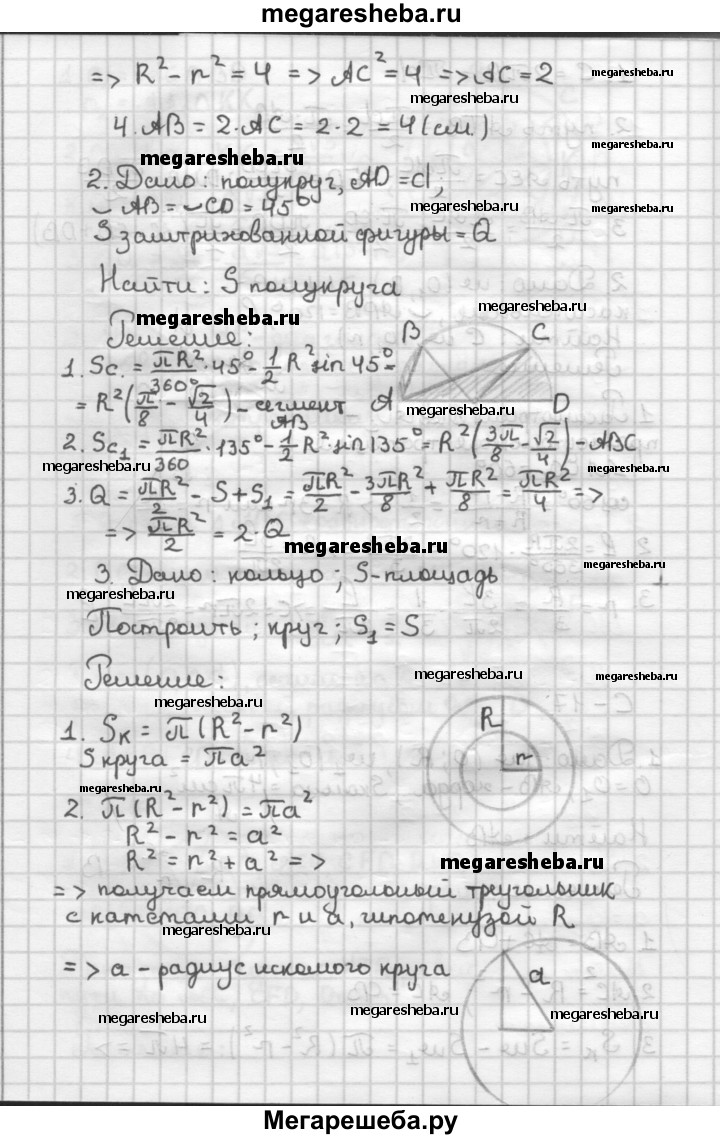 megaresheba.ru
=> R² - r² = 4 => AC² = 4 => AC = 2
megaresheba.ru
megaresheba.ru
4. AB = 2·AC = 2·2 = 4 (см.)
megaresheba.ru
megaresheba.ru
2. Дано: полукруг, AD = d,
◡ AB = ◡ CD = 45°
megaresheba.ru
S заштрихованной фигуры = Q
Найти: S полукруга
megaresheba.ru
megaresheba.ru
Решение:
B C
A D
1. Sс. = πR²/360° · 45° - 1/2 R² sin 45° =
= R² (π/8 - √2/4) - сегмент AB
2. Sс₁ = πR²/360 · 135° - 1/2 R² · sin 135° = R² (3π/8 - √2/4) - ABC
megaresheba.ru
megaresheba.ru
3. Q = πR²/2 - S + S₁ = πR²/2 - 3πR²/8 + πR²/8 = πR²/4 =>
=> πR²/2 = 2·Q
megaresheba.ru
megaresheba.ru
3. Дано: кольцо; S - площадь
megaresheba.ru
Построить; круг; S₁ = S
megaresheba.ru
Решение:
megaresheba.ru
megaresheba.ru
R
r
1. Sк = π (R² - r²)
S круга = πa²
megaresheba.ru
2. π (R² - r²) = πa²
R² - r² = a²
R² = r² + a² =>
megaresheba.ru
=> получаем прямоугольный треугольник
с катетами r и a, гипотенузой R
megaresheba.ru
=> a - радиус искомого круга
a
megaresheba.ru
megaresheba.ru
megaresheba.ru
Мегарешеба.ру